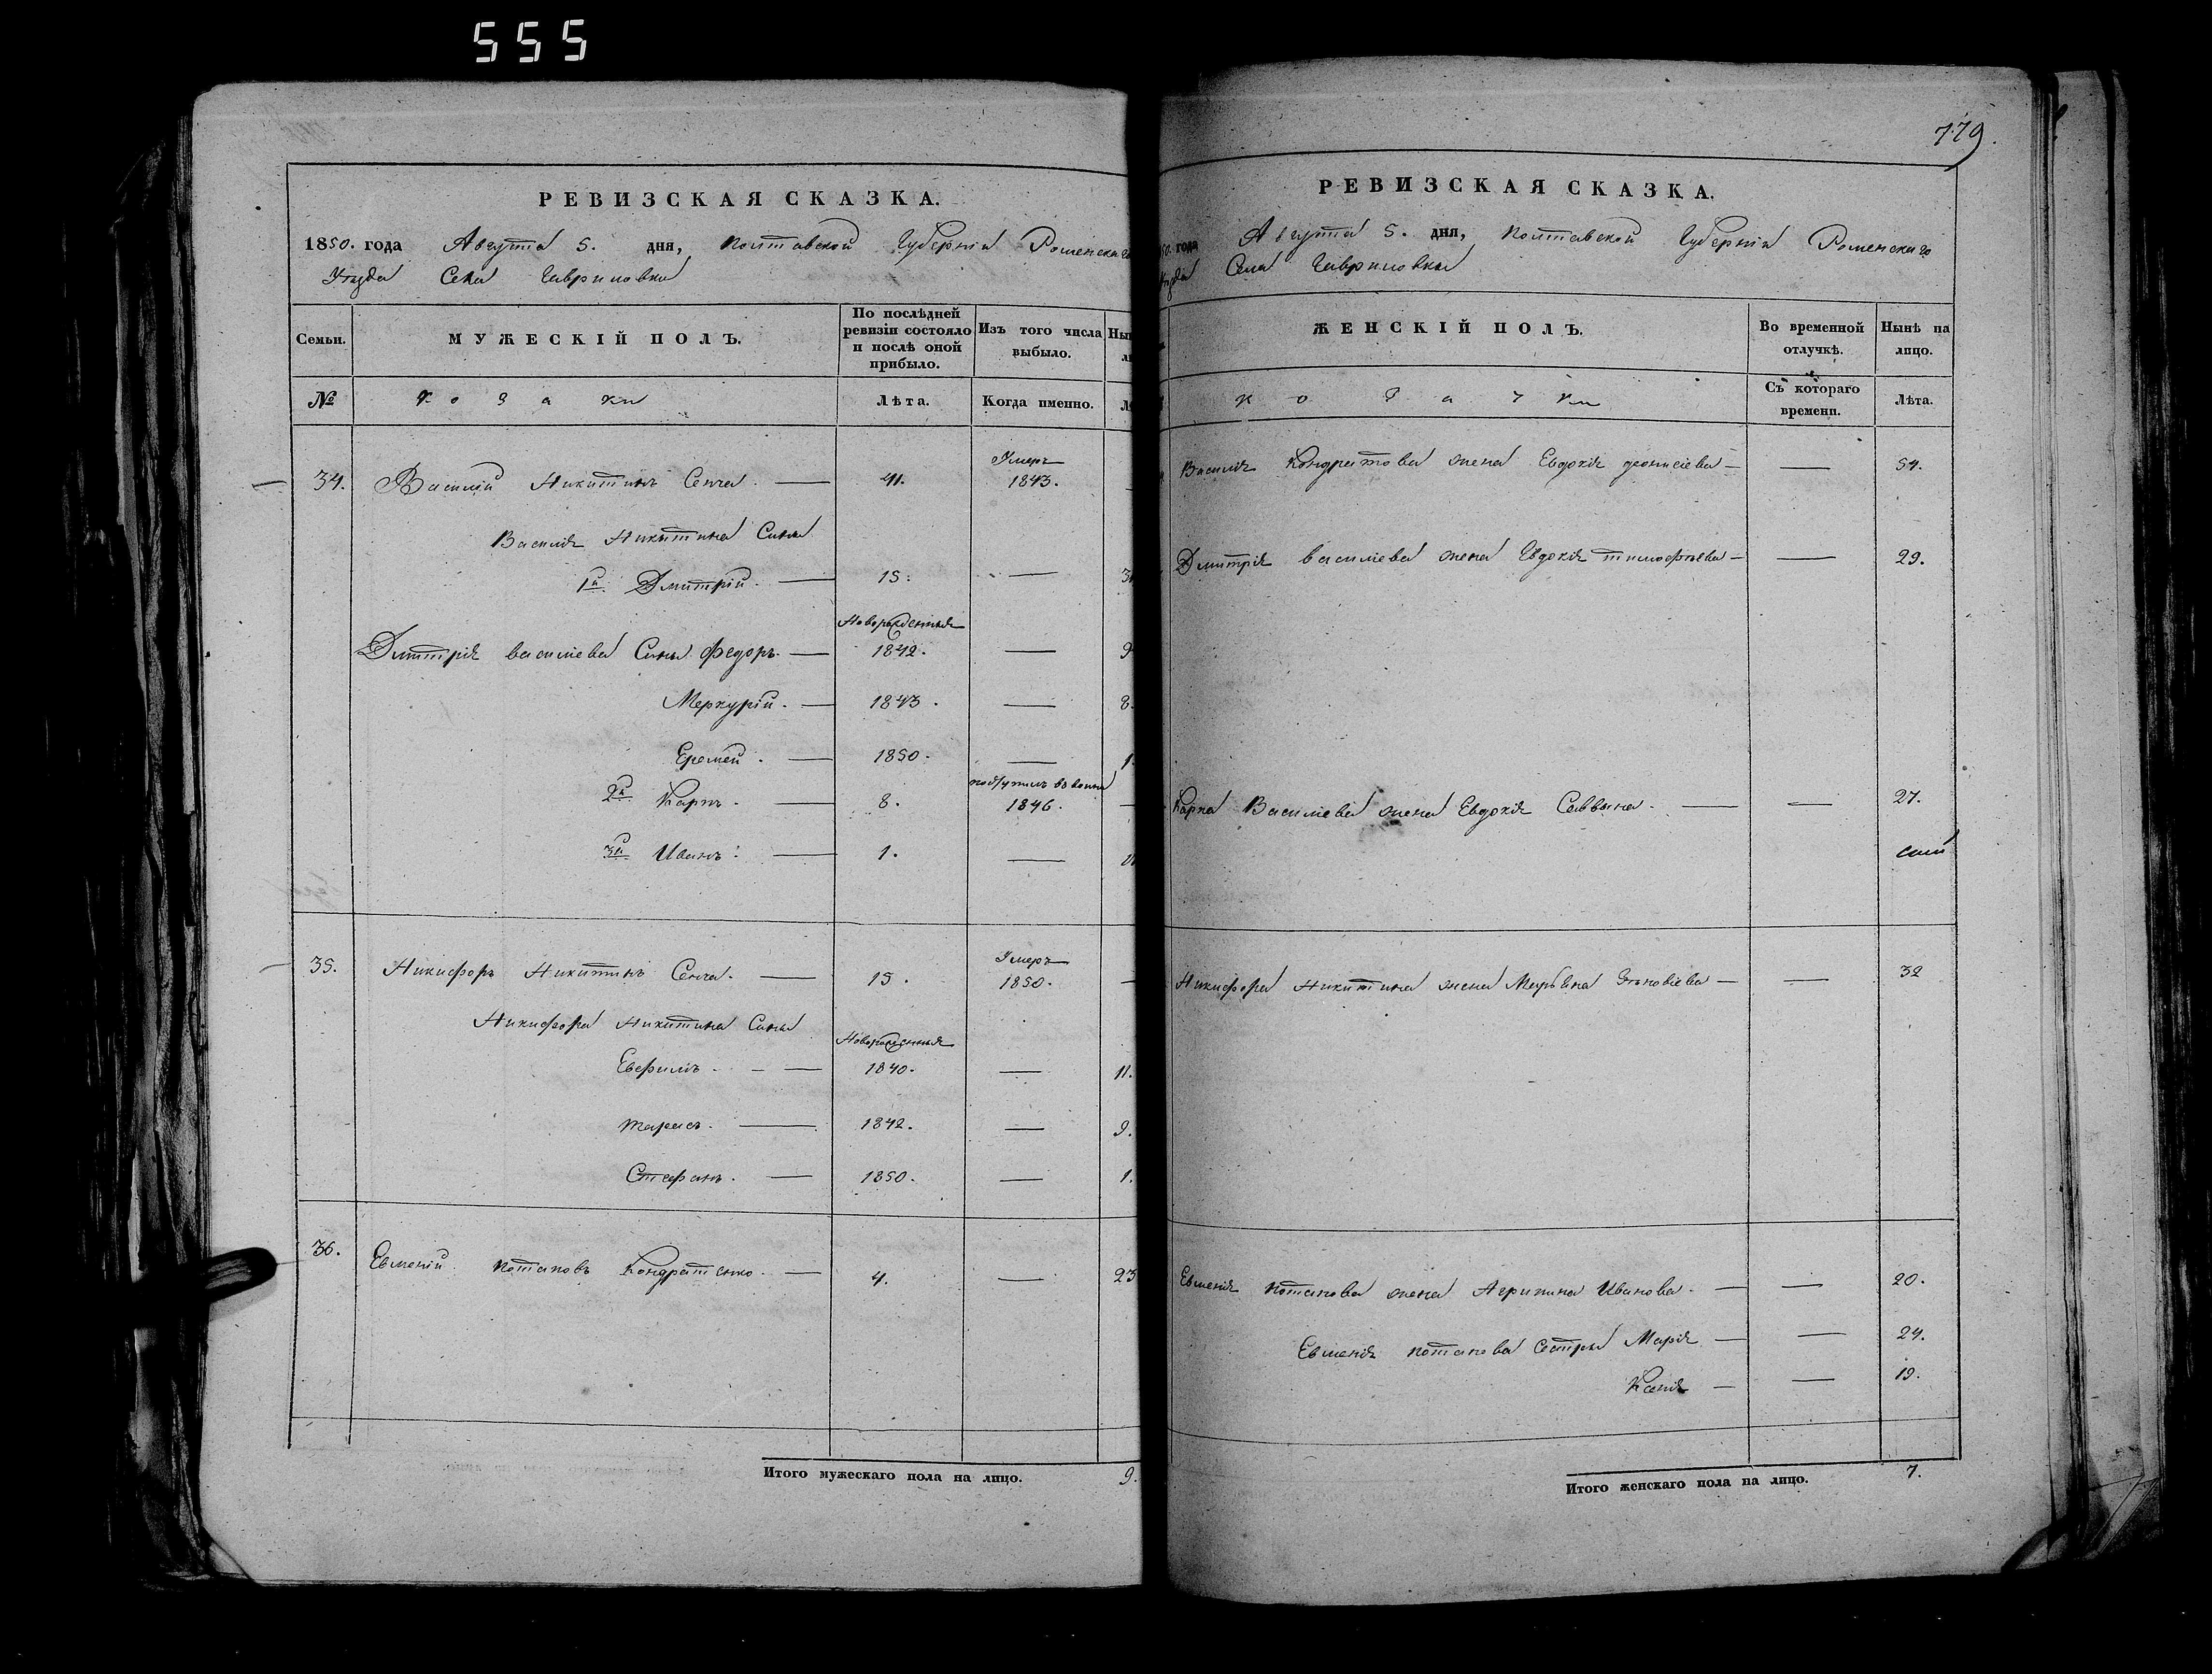 555
РЕВИЗСКАЯ СКАЗКА.
1850. года Августа 5. дня, Полтавской Губерніи Роменскаго
Уезда Села Гавриловки
Семьи. МУЖЕСКІЙ ПОЛЪ. По послѣдней ревизіи состояло и послѣ оной прибыло. Изъ того числа выбыло.
№ Козаки Лѣта. Когда именно.
34. Василій Никитинъ Сенча. — 41. Умеръ 1843.
Василія Никитина Сины
1й Дмитрій. — 15. —
Дмитрія Василіева Сины Федоръ. — Новорожденныя 1842. — 9
Меркурій. — 1843. — 8.
Еремей. — 1850. — 1.
2й Карпъ. — 8. 1846. —
3й Иванъ. — 1. —
35. Никифоръ Никитинъ Сенча. — 15. Умеръ 1850. —
Никифора Никитина Сины
Евфимъ. — Новорожденныя 1840. — 11.
Тарасъ. — 1842. — 9.
Стефанъ. — 1850. — 1.
36. Евменій Потаповъ Кондратенко. — 4. — 23
Итого мужескаго пола на лицо. 9.
779.
РЕВИЗСКАЯ СКАЗКА.
50. года Августа 5. дня, Полтавской Губерніи Роменскаго
Уезда Села Гавриловки
ЖЕНСКІЙ ПОЛЪ. Во временной отлучкѣ. Нынѣ на лицо.
Козачки Съ котораго времени. Лѣта.
Василія Кондратова жена Евдокія Деонисіева — — 54.
Дмитрія Василіева жена Евдокія Тимофѣева — — 29.
Карпа Василіева жена Евдокія Саввина. — — 27.
Никифора Никитина жена — — 32
Евменія Потапова жена Агрипина Иванова. — — 20.
Евменія Потапова Сестры Марія — — 24.
Ксенія — — 19.
Итого женскаго пола на лицо. 7.